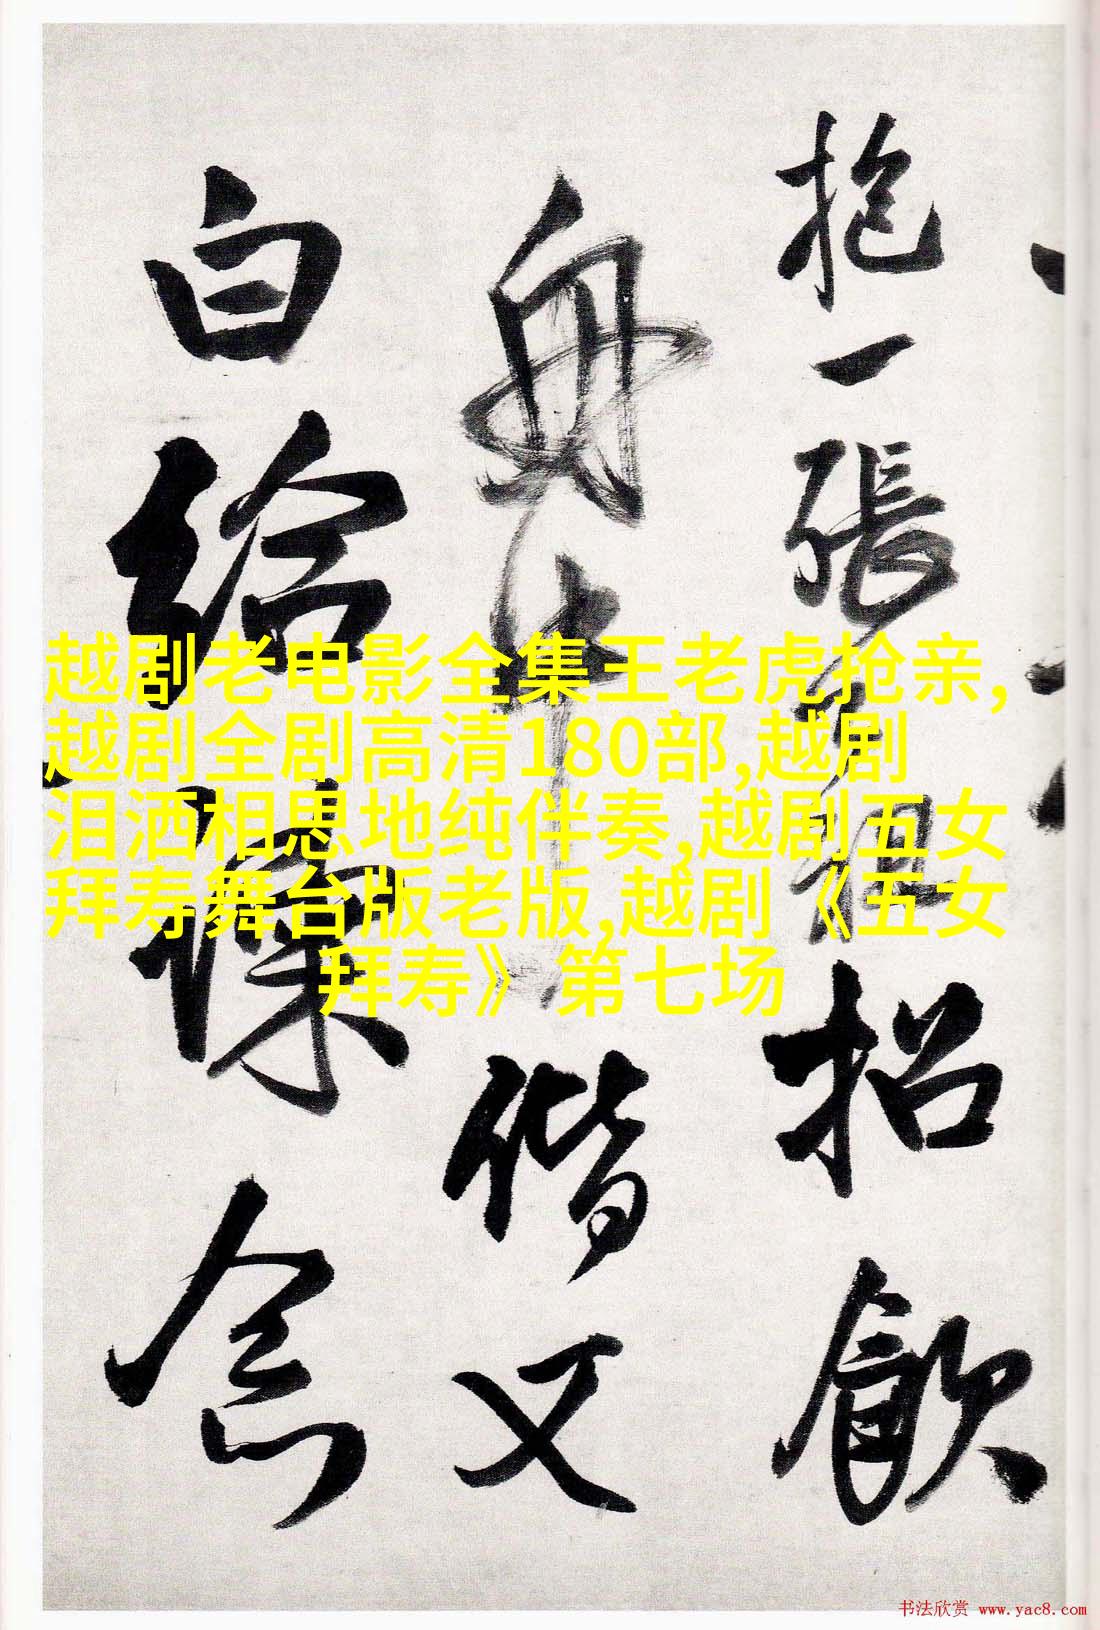 抱一張
招飲
舟中
偕又
白給諫
念
越剧老电影全集王老虎抢亲,
越剧全剧高清180部,越剧
泪洒相思地纯伴奏,越剧五女
拜寿舞台版老版,越剧《五女
拜寿》第七场
书法欣赏 www.yac8.com